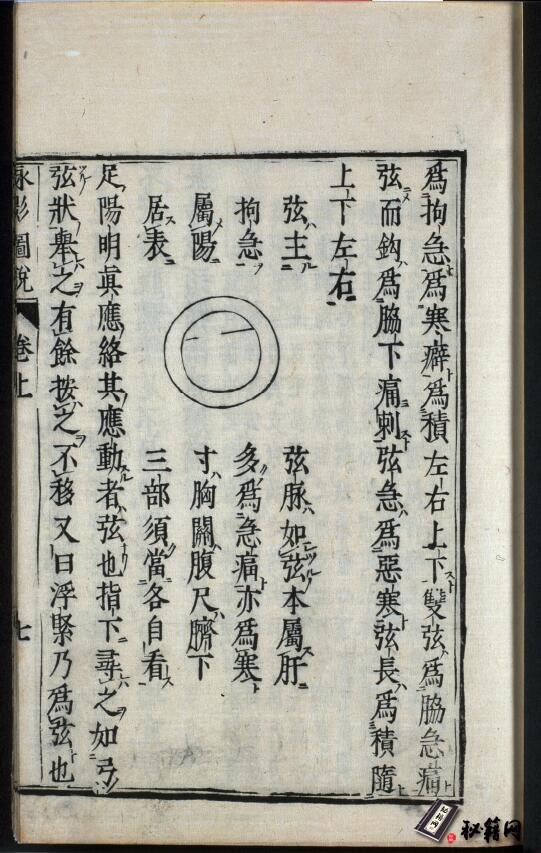 爲拘急爲寒癖爲積左右上下雙弦爲脇急痛
弦而鈎爲脇下痛刺弦急爲惡寒弦長爲積隨
上下左右
弦主
拘急
屬陽
居表
弦脉如弦本屬肝
多爲急痛亦爲寒
寸胸關腹尺臍下
三部須當各自看
足陽明眞應絡其應動者弦也指下尋之如弓
弦狀舉之有餘按之不移又曰浮緊乃爲弦也
脉影圖說
卷上
七
秘籍网